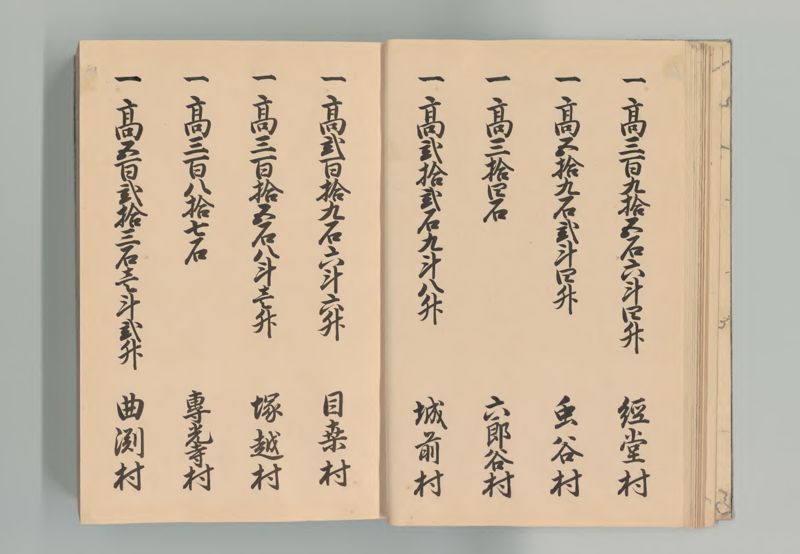 一 高三百九拾五石六斗四升 經堂村
一 高五拾九石弐斗四升 虫谷村
一 高三拾四石 六郎谷村
一 高弐拾弐石九斗八升 城前村
一 高弐百拾九石六斗六升 目桑村
一 高三百拾五石八斗壱升 塚越村
一 高三百八拾七石 專光寺村
一 高五百弐拾三石壱斗弐升 曲渕村